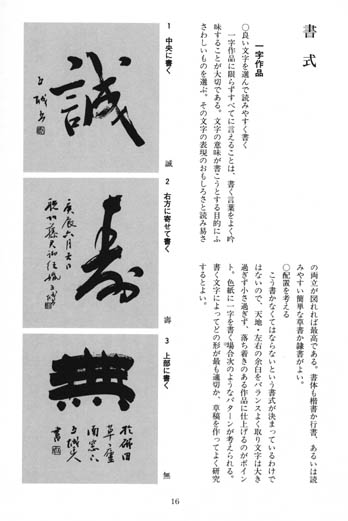 書式
一字作品
〇良い文字を選んで読みやすく書く
一字作品に限らずすべてに言えることは、書く言葉をよく吟
味することが大切である。文字の意味が書こうとする目的にふ
さわしいものを選ぶ。その文字の表現のおもしろさと読み易さ
の両立が図れれば最高である。書体も楷書か行書、あるいは読
みやすい簡単な草書か隷書がよい。
〇配置を考える
こう書かなくてはならないという書式が決まっているわけで
はないので、天地・左右の余白をバランスよく取り文字は大き
過ぎず小さ過ぎず、落ち着きのある作品に仕上げるのがポイン
ト。色紙に一字を書く場合次のようなパターンが考えられる。
書く文字によってどの形が最も適切か、草稿を作ってよく研究
するとよい。
1 中央に書く
誠
誠
2 右方に寄せて書く
壽
寿
3 上部に書く
無
無
16